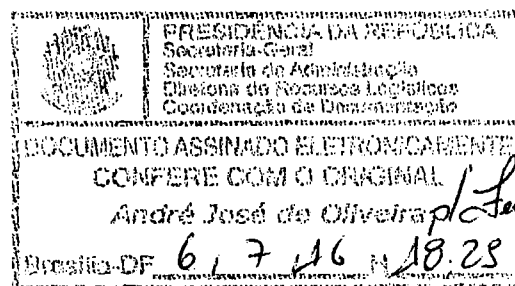 PRESIDÊNCIA DA REPÚBLICA
Secretaria-Geral
Secretaria de Administração
Diretoria de Recursos Logísticos
Coordenação de Documentação
DOCUMENTO ASSINADO ELETRONICAMENTE
CONFERE COM O ORIGINAL
André José de Oliveira p/
Brasília-DF 6, 7, 16 H 18:29